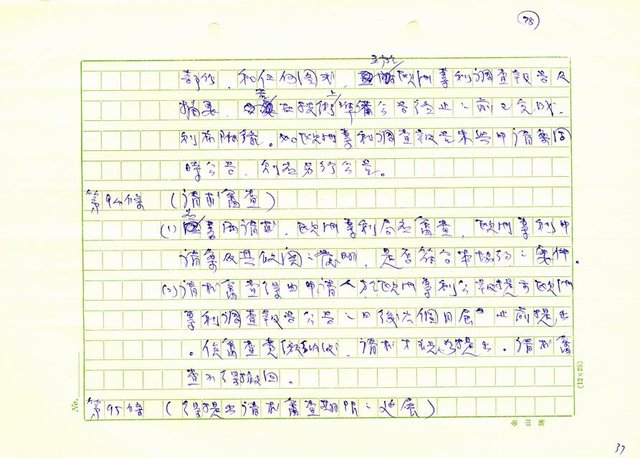 (75)
部份,和任何圖式,歐洲專利調查報告及
摘要,在技術準備公告終止之前已完成,
則應附錄。如歐洲專利調查報告未與申請案同
時公告,則應另行公告。
第94條 (請求審查)
(1) 請求,歐洲專利局應審查,歐洲專利申
請案及其有關之發明,是否符合本公約之條件。
(2) 請求審查得由申請人於歐洲專利公報提示歐洲
專利調查報告公告之日後六個月屆止前提出
。俟審查費繳納後,請求才視為提出。請求審
查不得撤回。
第95條 (得提出請求審查期間之延展)
No.
(12×25)
金山牌
37